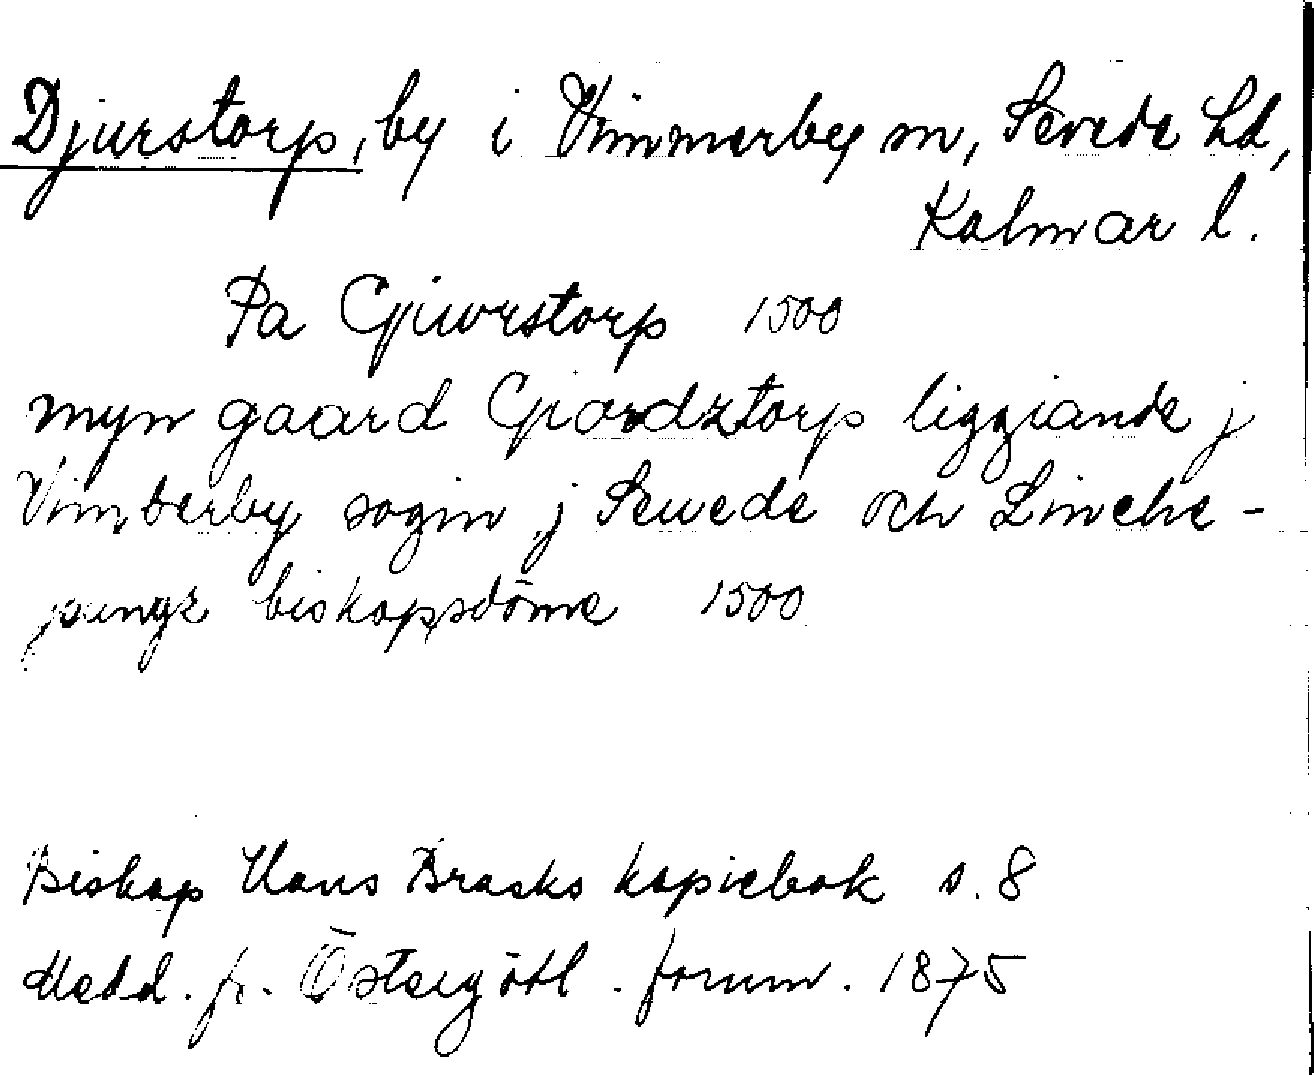 Djurstorp, by i Vimmerby sn, Sevede hd,
Kalmar l.
Pa Gjurstorp 1500
myn gaard Giordztorp liggiande j
Vimberby sogin j Sewede och Linche-
pungz biskopsdöme 1500
Biskop Hans Brasks kopiebok s. 8
Medd. fr. Östergötl. fornm. 1875